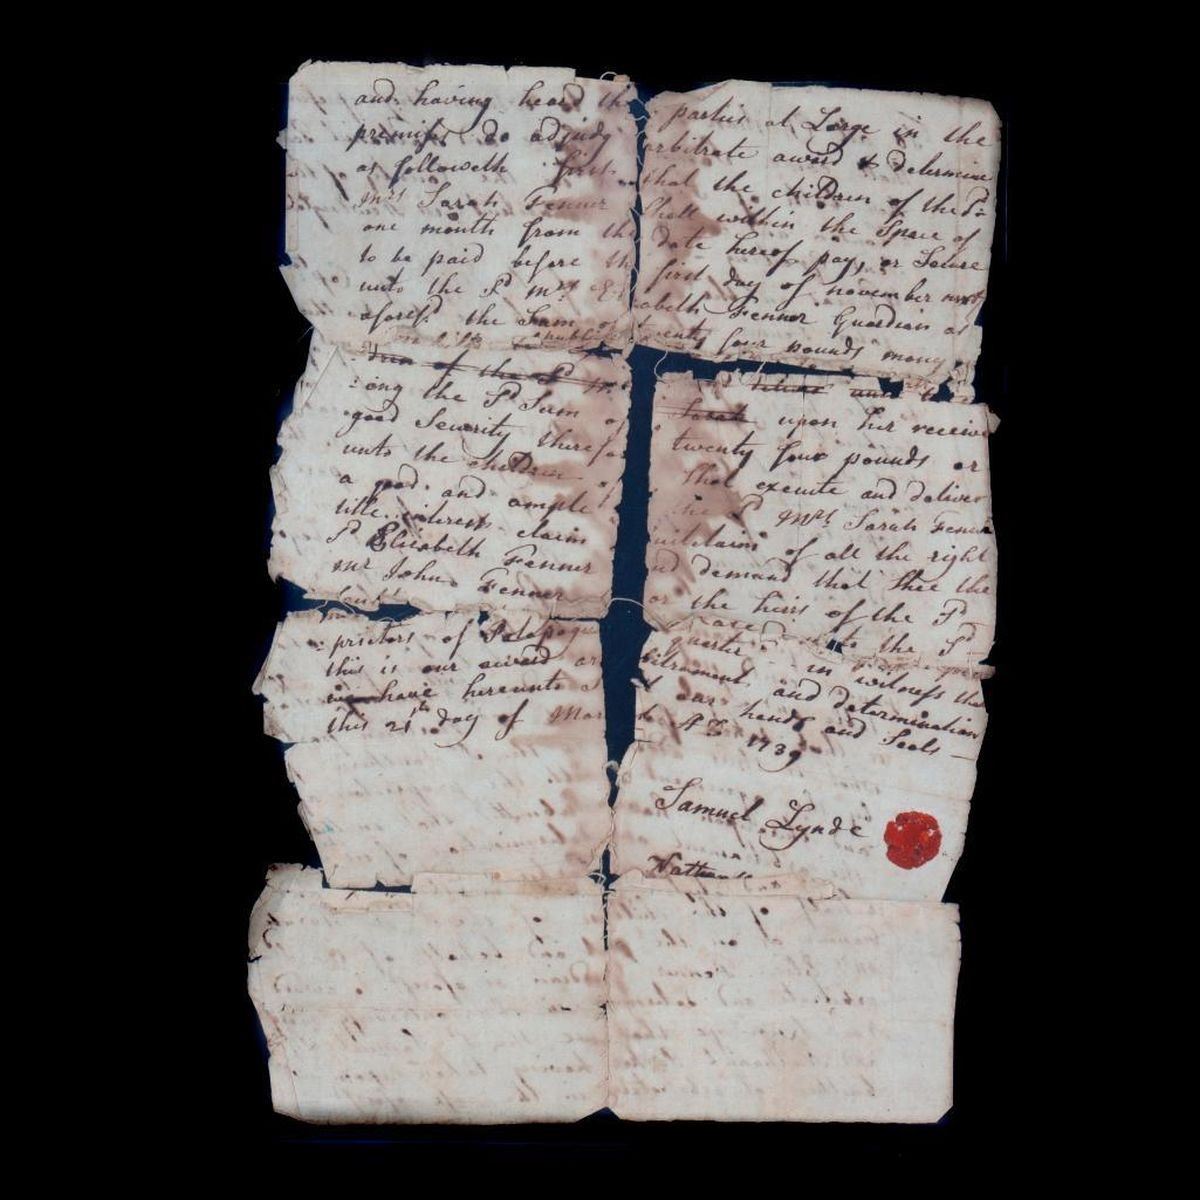 and having heard the parties at Large in the
premises do adjudg arbitrate award & determine
as followeth first that the children of the Sd
Mrs Sarah Fenner Shall within the Space of
one month from the date hereof pay, or Secure
to be paid before the first day of november next
unto the Sd Mrs Elizabeth Fenner Guardian as
aforesd. the Sum of twenty four pounds mony
of the Sd
Sarah upon her receiv
ing the Sd Sum of twenty four pounds or
good Security therefor Shal execute and deliver
unto the children of the Sd Mrs Sarah Fenner
a good and ample quitclaim of all the right
title interest claim and demand that Shee the
Sd Elizabeth Fenner or the heirs of the Sd
Mr John Fenner have unto the Sd
prietors of quarter in witness that
this is our award arbitrament and determination
we have hereunto Set our hands and Seals
this 21th day of March A D 1739
Samuel Lynde